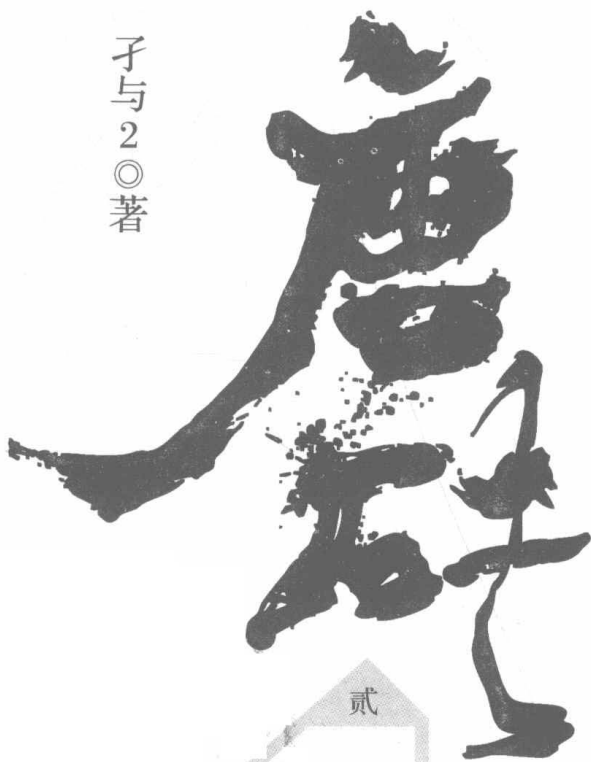 孑与2◎著
唐砖
贰